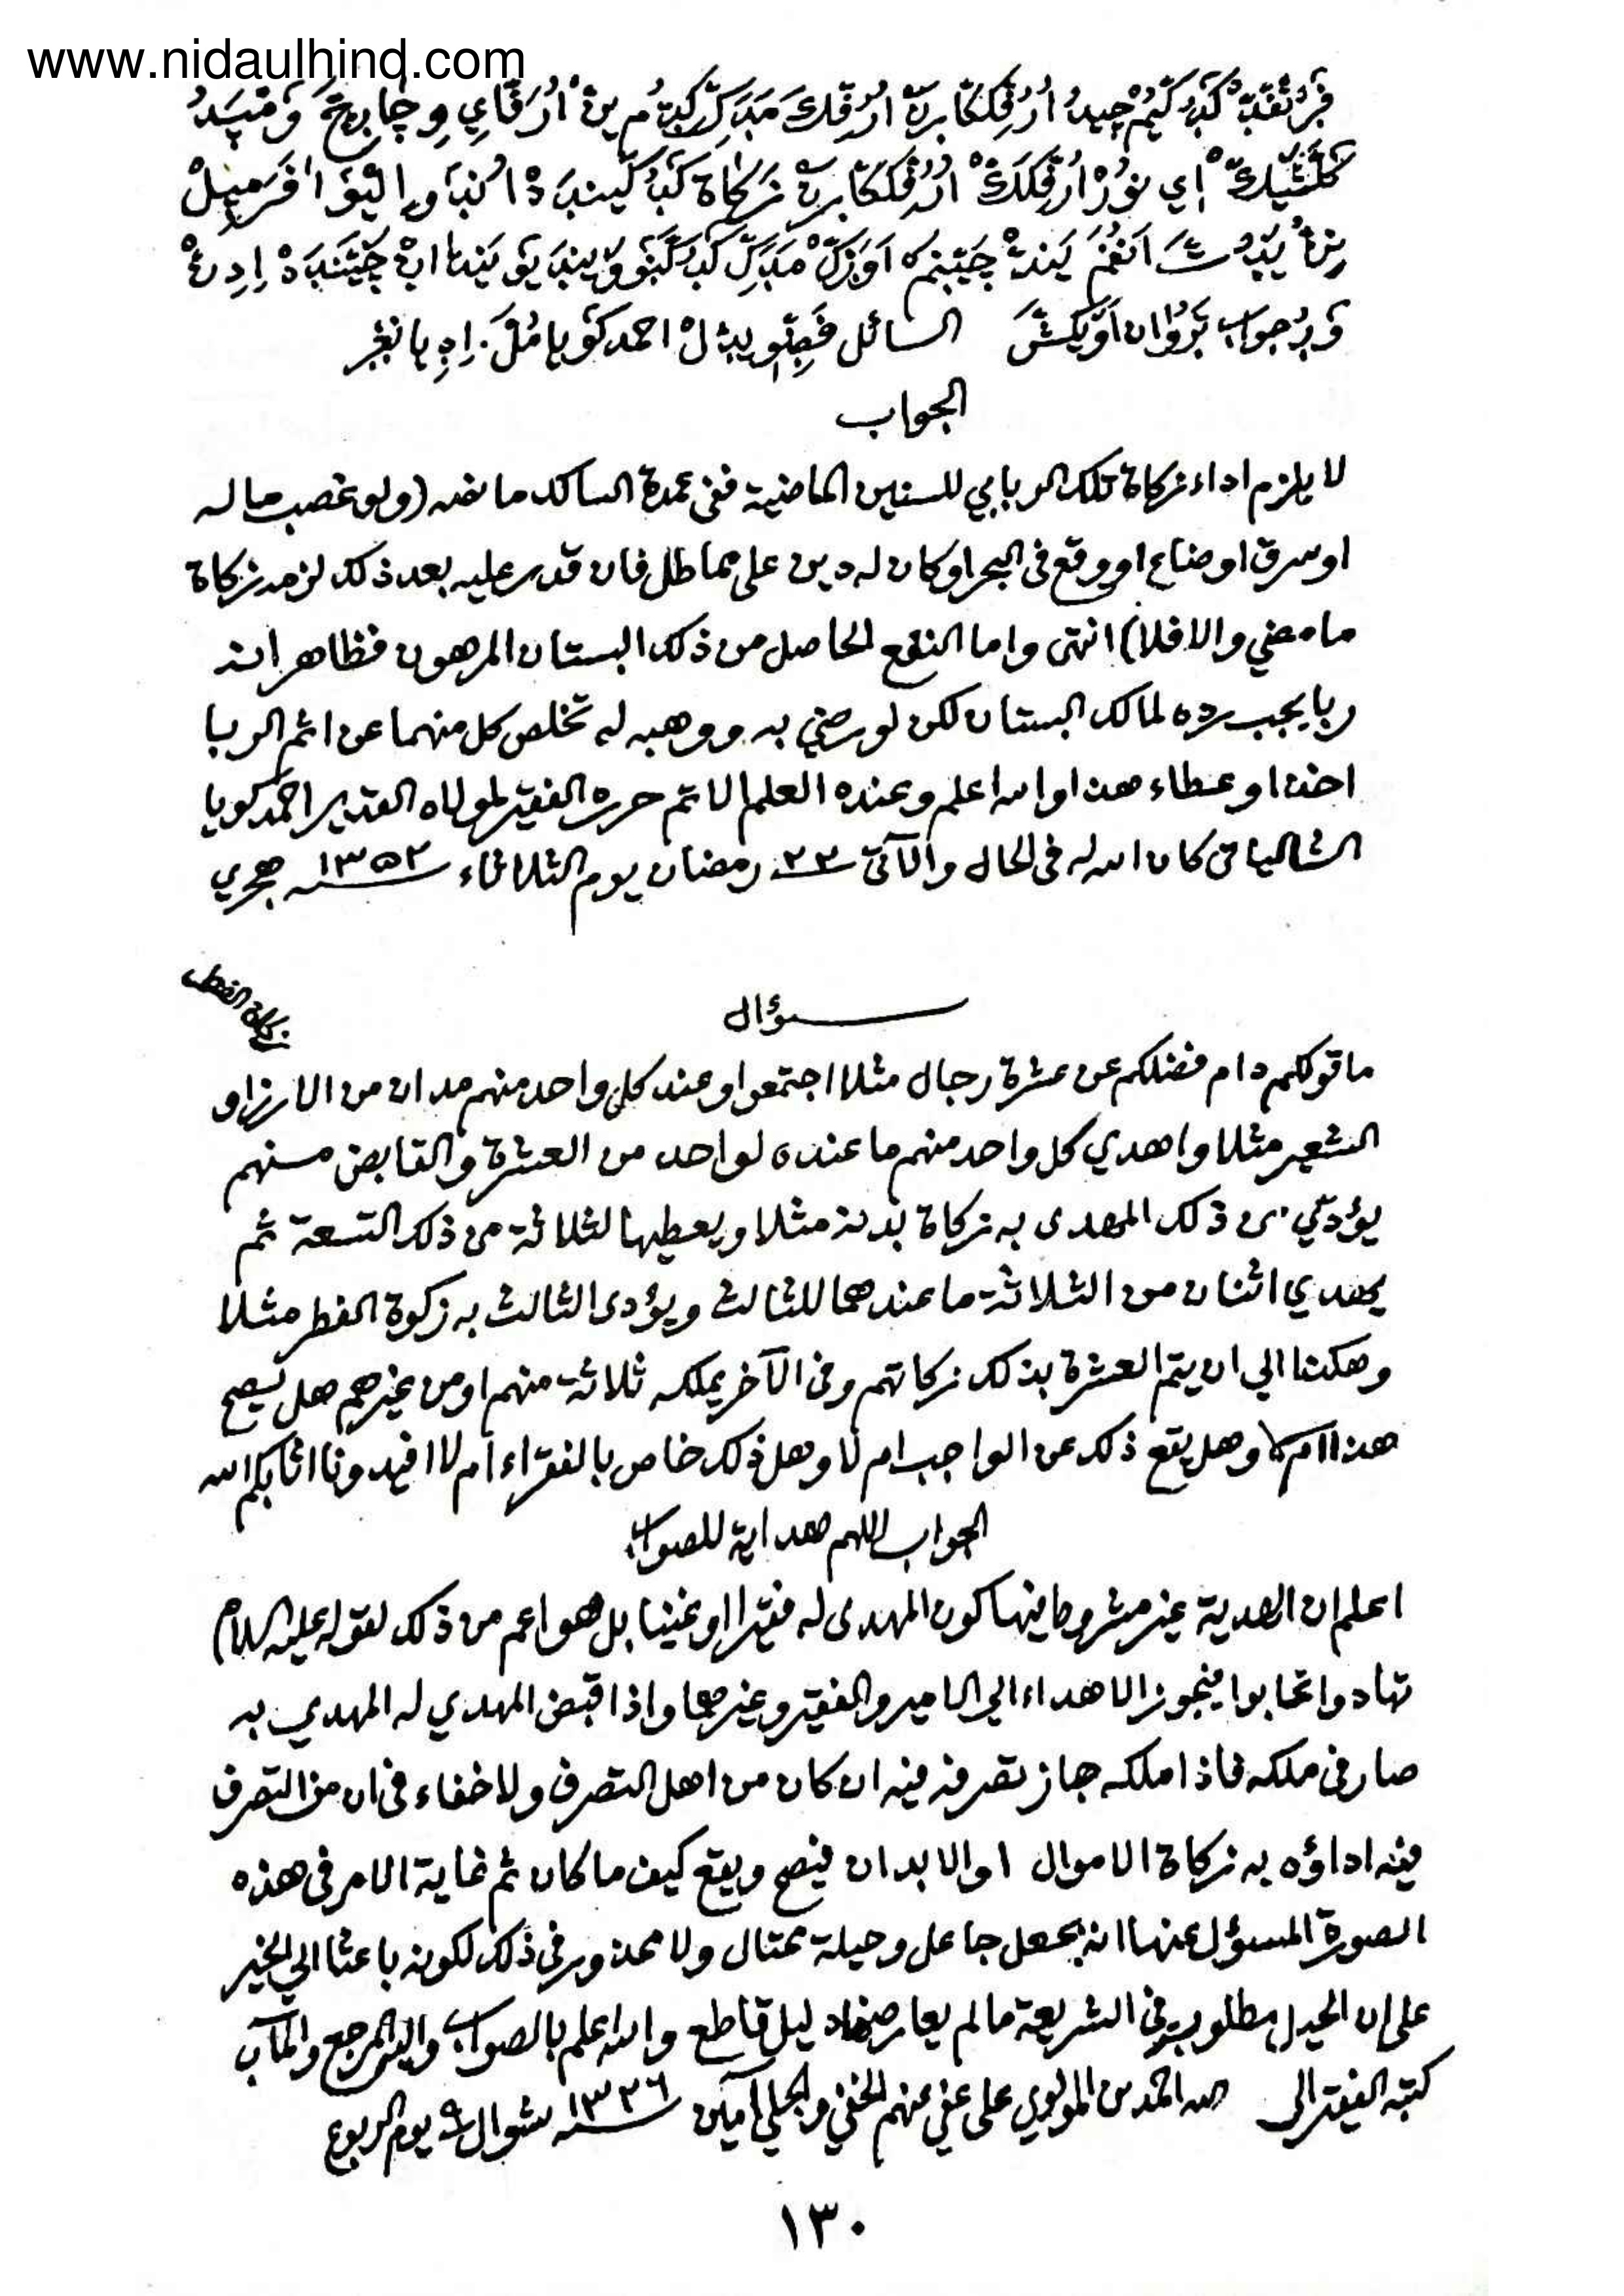 www.nidaulhind.com
السائل احمد كويا
الجواب
لا يلزم اداء زكاة تلك الربابي للسنين الماضية ففى عمدة السالك ما نصه (ولو غصب ماله
او سرق او ضاع او وقع فى البحر او كان له دين على مماطل فان قدر عليه بعد ذلك لزمه زكاة
ما مضي والا فلا) انتهى واما النفع الحاصل من ذلك البستان المرهون فظاهر انه
ربا يجب رده لمالك البستان لكن لو رضي به ووهبه له تخلص كل منهما عن اثم الربا
اخذا وعطاء هذا والله اعلم وعنده العلم الاتم حرره الفقير لمولاه القدير احمد كويا
الشالياتى كان الله له فى الحال والآتى ٢٣ رمضان يوم الثلاثاء سنه ١٣٥٢ هجري
زكاة الفطر
سؤال
ما قولكم دام فضلكم عن عشرة رجال مثلا اجتمعوا وعند كل واحد منهم مدان من الارز او
الشعير مثلا واهدي كل واحد منهم ما عنده لواحد من العشرة والقابض منهم
يؤدي من ذلك المهدى به زكاة بدنه مثلا ويعطيها لثلاثة من ذلك التسعة ثم
يهدي اثنان من الثلاثة ما عندهما للثالث ويؤدى الثالث به زكوة الفطر مثلا
وهكذا الي ان يتم العشرة بذلك زكاتهم وفى الآخر يملكه ثلاثة منهم او من غيرهم هل يصح
هذا ام لا وهل يقع ذلك عن الواجب ام لا وهل ذلك خاص بالفقراء ام لا افيدونا اثابكم الله
الجواب اللهم هداية للصواب
اعلم ان الهدية غير مشروط فيها كون المهدى له فقيرا او غنيا بل هو اعم من ذلك لقوله عليه السلام
تهادوا تحابوا فيجوز الاهداء الي الامير والفقير وغيرهما واذا قبض المهدي له المهدي به
صار فى ملكه فاذا ملكه جاز تصرفه فيه ان كان من اهل التصرف ولا خفاء فى ان من التصرف
فيه اداؤه به زكاة الاموال او الابدان فيصح ويقع كيف ما كان ثم غاية الامر فى هذه
الصورة المسؤل عنها انه بجعل جاعل وحيلة محتال ولا محذور فى ذلك لكونه باعثا الي الخير
على ان الحيل مطلوبة فى الشريعة ما لم يعارضها دليل قاطع والله اعلم بالصواب واليه المرجع والمآب
كتبه الفقير الى الله احمد بن المولوي على عفي عنهم الخفي والجلي آمين سنه ١٣٢٦ شوال ٩ يوم الربوع
١٣٠